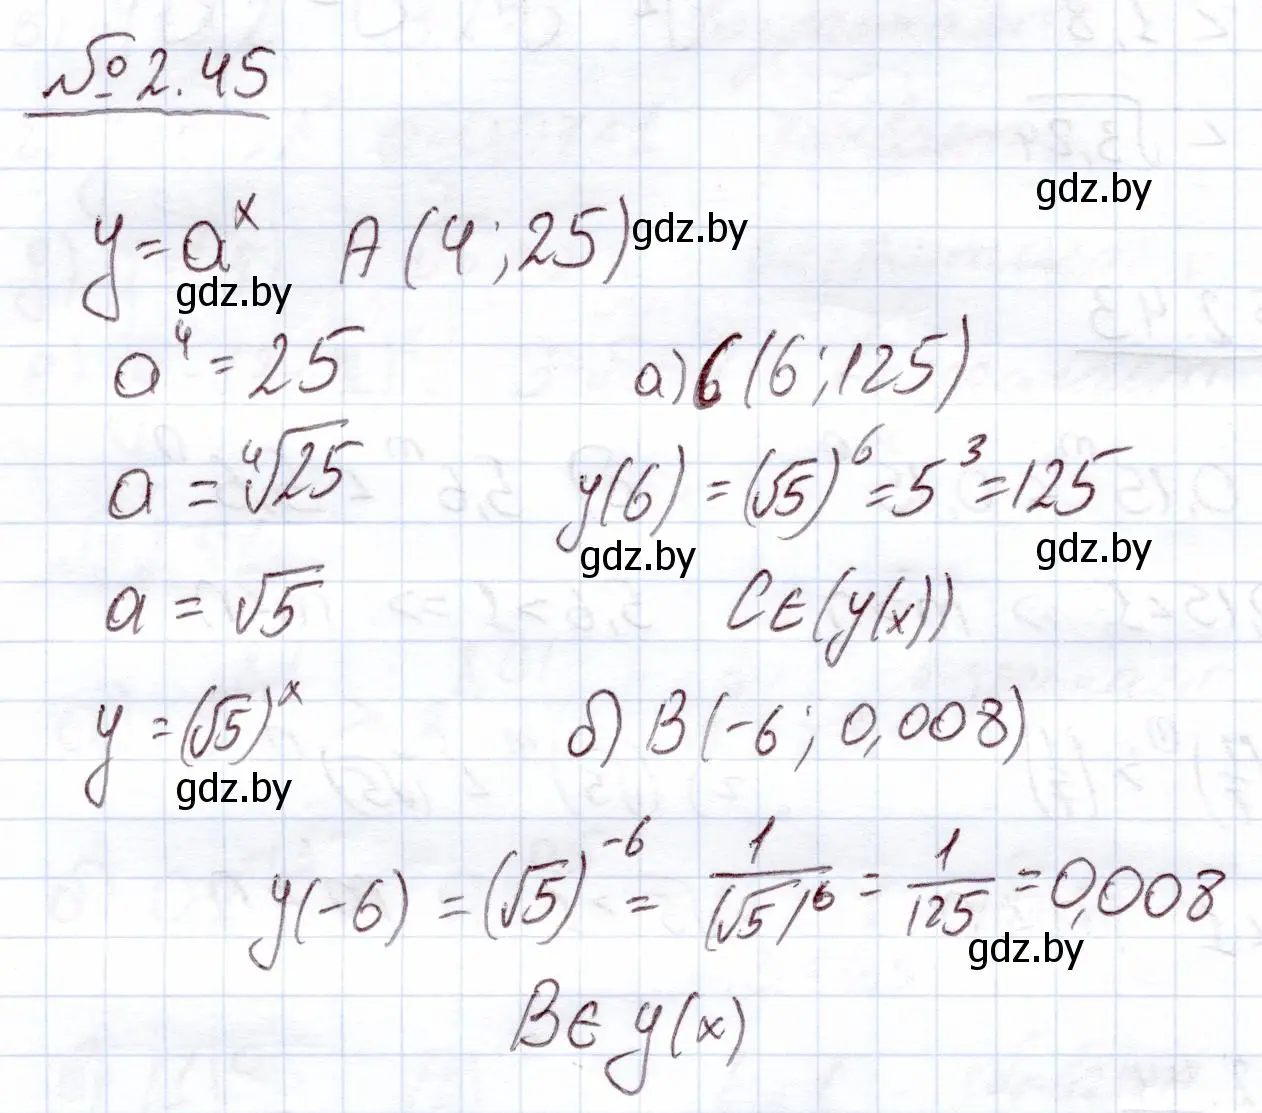 №2.45
y = a^x A (4 ; 25) gdz.by
gdz.by
gdz.by
a^4 = 25 а) б (6 ; 125)
a = ∜25 y(6) = (√5)^6 = 5^3 = 125
gdz.by gdz.by
a = √5 C ∈ (y(x))
y = (√5)^x б) B (-6 ; 0,008)
gdz.by
y(-6) = (√5)^-6 = 1/(√5)^6 = 1/125 = 0,008
gdz.by
B ∈ y(x)